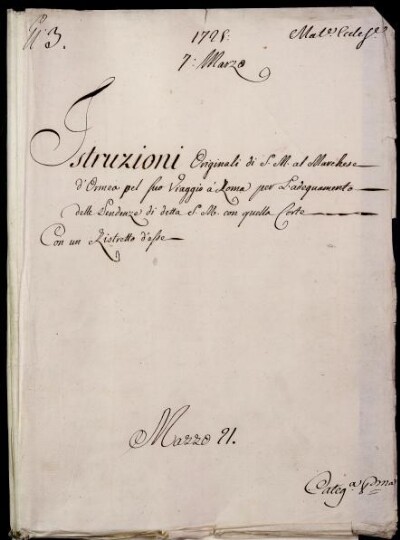 N.° 3.
1725.
Mat.e Eccles.e
7: Marzo
Istruzioni Originali di S. M. al Marchese
d'Ormea pel suo Viaggio à Roma per L'adequamento
delle Pendenze di detta S. M. con quella Corte
Con un Ristretto d'esse
Mazzo 21.
Categ.a P.ma